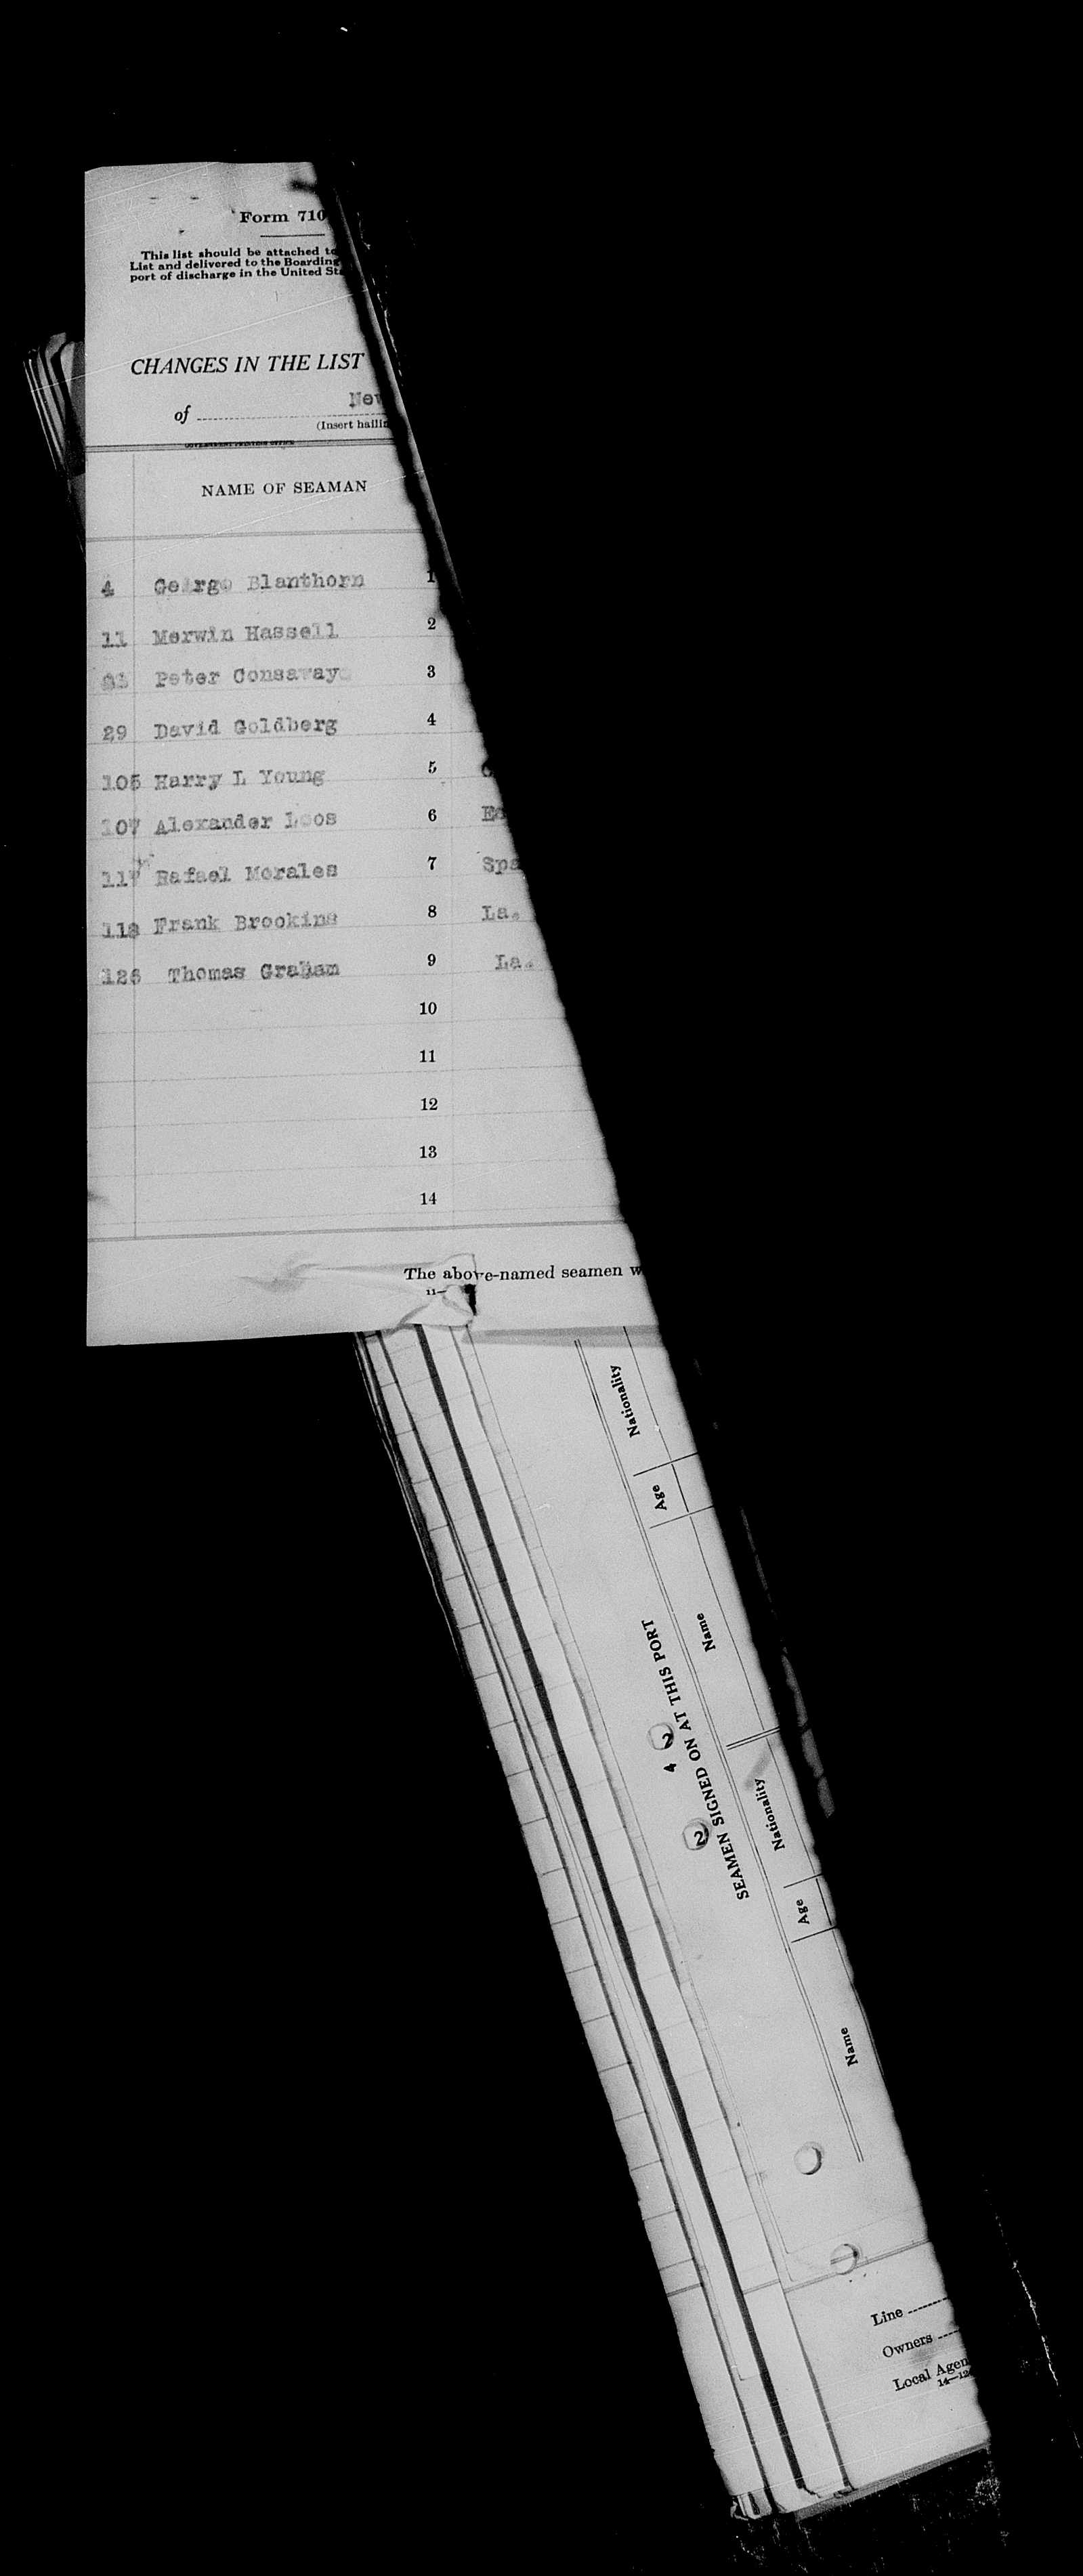 Form 710
This list should be attached to
List and delivered to the Boarding
port of discharge in the United Sta
CHANGES IN THE LIST
of New
(Insert hailin
GOVERNMENT PRINTING OFFICE
NAME OF SEAMAN
4 George Blanthorn 1
11 Merwin Hassell 2
Peter 3
29 David Goldberg 4
105 Harry L Young 5
107 Alexander Loos 6 Ec
117 Rafael Morales 7 Spa
118 Frank Brookins 8 La.
126 Thomas Graham 9 La.
10
11
12
13
14
The above-named seamen w
11—
SEAMEN SIGNED ON AT THIS PORT
2 4 2
Name Age Nationality Name Age Nationality
Line
Owners
Local Agen
14—12